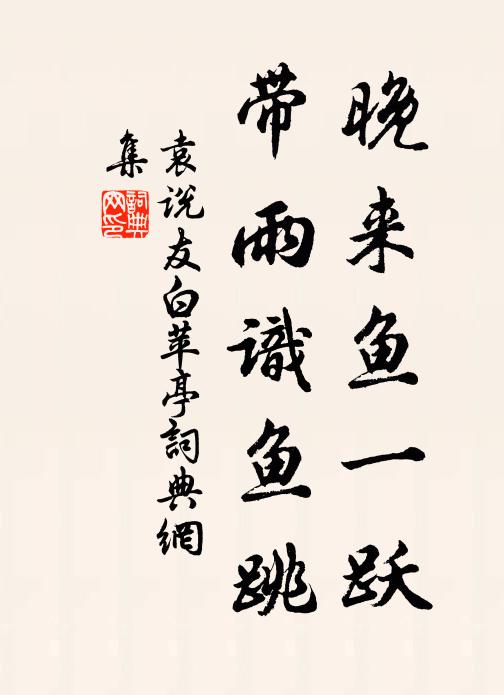 晚来鱼一跃
带雨識鱼跳
袁说友白苹亭詞典網
集
詞典网印